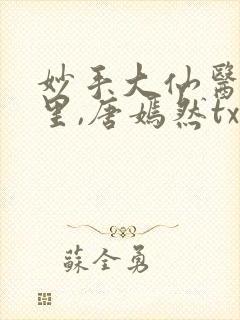 妙手大仙醫
里,唐嫣然tx
蘇全勇